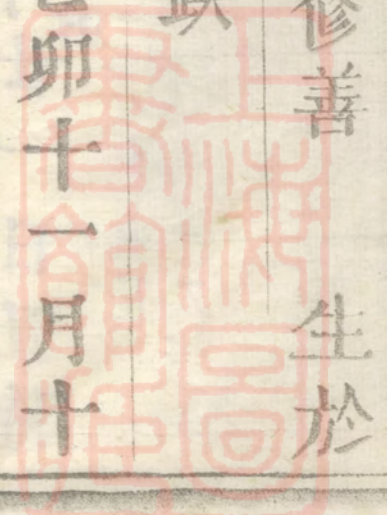 修善 生於
卯十一月十
上海圖書館藏